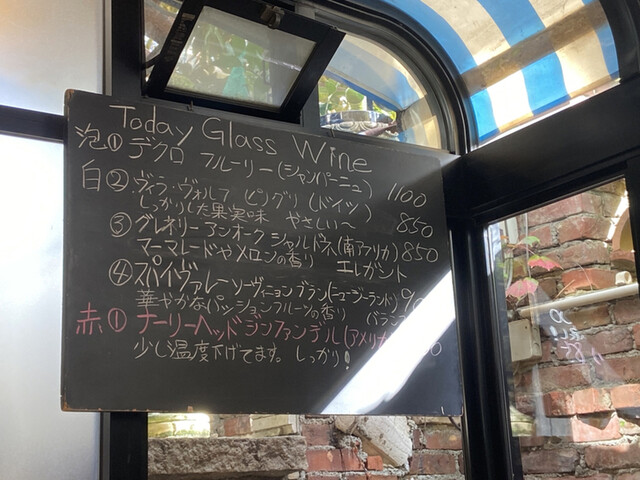 Today Glass Wine
泡① デクロ フルーリー(シャンパーニュ) 1100
白② ヴィラ・ヴォルフ ピグリ(ドイツ) 850
しっかりした果実味 やさしい〜
③ グレネリー アンオーク シャルドネ(南アフリカ) 850
マーマレードやメロンの香り エレガント
④ スパイヴァレー ソーヴィニョンブラン(ニュージーランド)
華やかなパッションフルーツの香り
赤① ナーリーヘッド ジンファンデル(アメリカ
少し温度下げてます。しっかり!